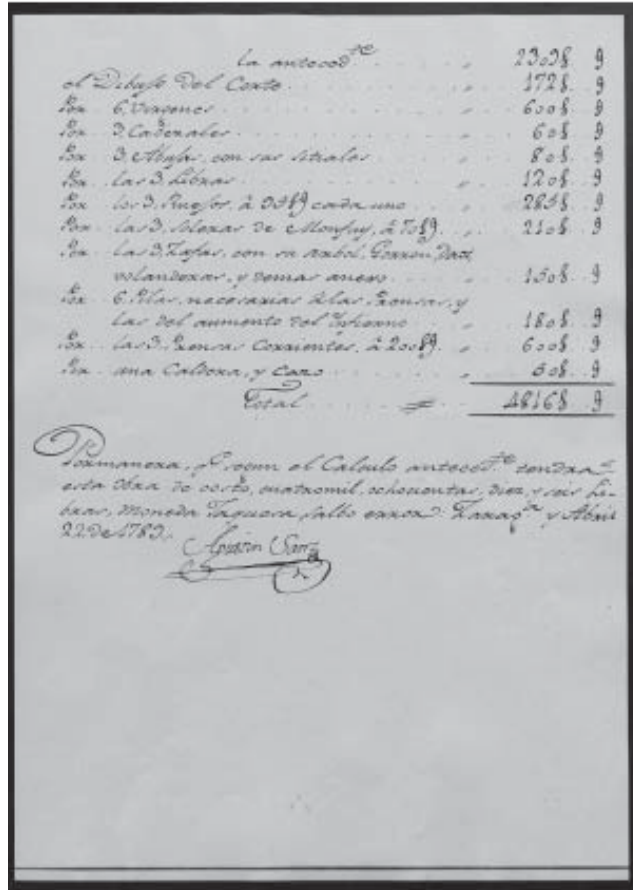 La anteced.te 2309£ 9
el Dibujo del Corte 172£ 9
Por 6. Virgenes 600£ 9
Por 3. Cadenales 60£ 9
Por 3. Abujas, con sus sitiales 80£ 9
Por las 3. Libras 120£ 9
Por los 3. Ruejos, à 95£9 cada uno 285£ 9
Por las 3. soleras de Monjuy, à 70£9 210£ 9
Por las 3. Zafas, con su arbol, Gorron,
volanderas, y demas anexo 150£ 9
Por 6. Pilas, necesarias à las Prensas, y
las del aumento del Infierno 180£ 9
Por las 3. Prensas Corrientes, à 200£9 600£ 9
Por una Caldera, y cazo 50£ 9
Total 4816£ 9
Por manera, q.e segun el Calculo anteced.te tendra
esta obra de costo, cuatromil, ochocientas, diez, y seis Li-
bras, moneda Jaquesa, salbo error. Zarag.za y Abril
22. de 1789.
Agustin Sanz